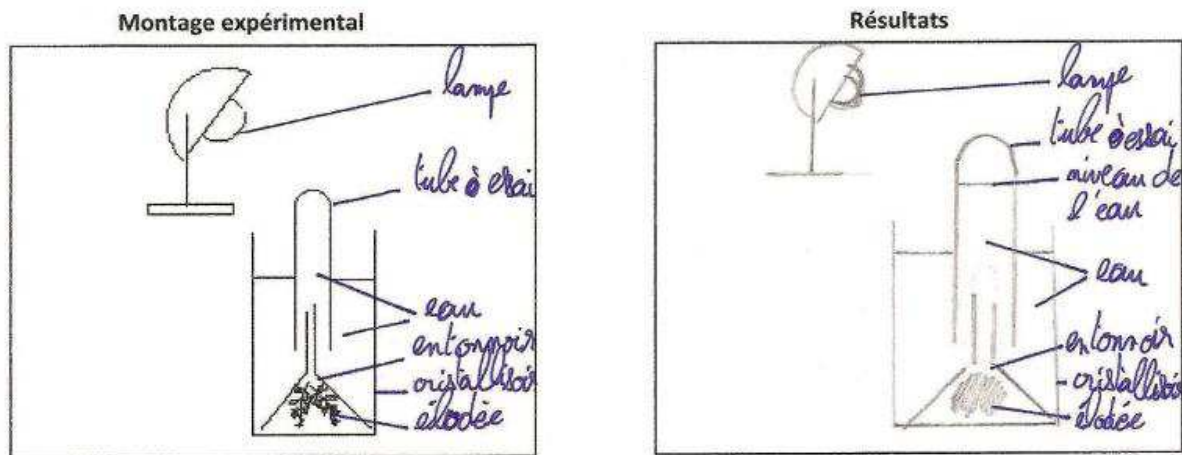 Montage expérimental
lampe
tube à essai
eau
entonnoir
cristallisoir
élodée
Résultats
lampe
tube à essai
niveau de
l'eau
eau
entonnoir
cristallisoir
élodée